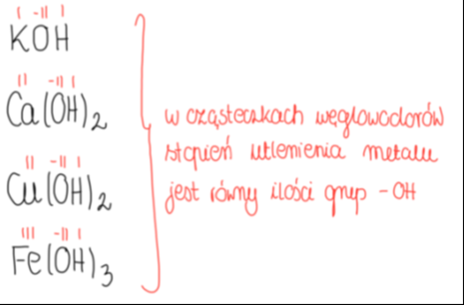 I -II I
KOH
II -II I
Ca(OH)₂
II -II I
Cu(OH)₂
III -II I
Fe(OH)₃
w cząsteczkach węglowodorów
stopień utlenienia metalu
jest równy ilości grup -OH